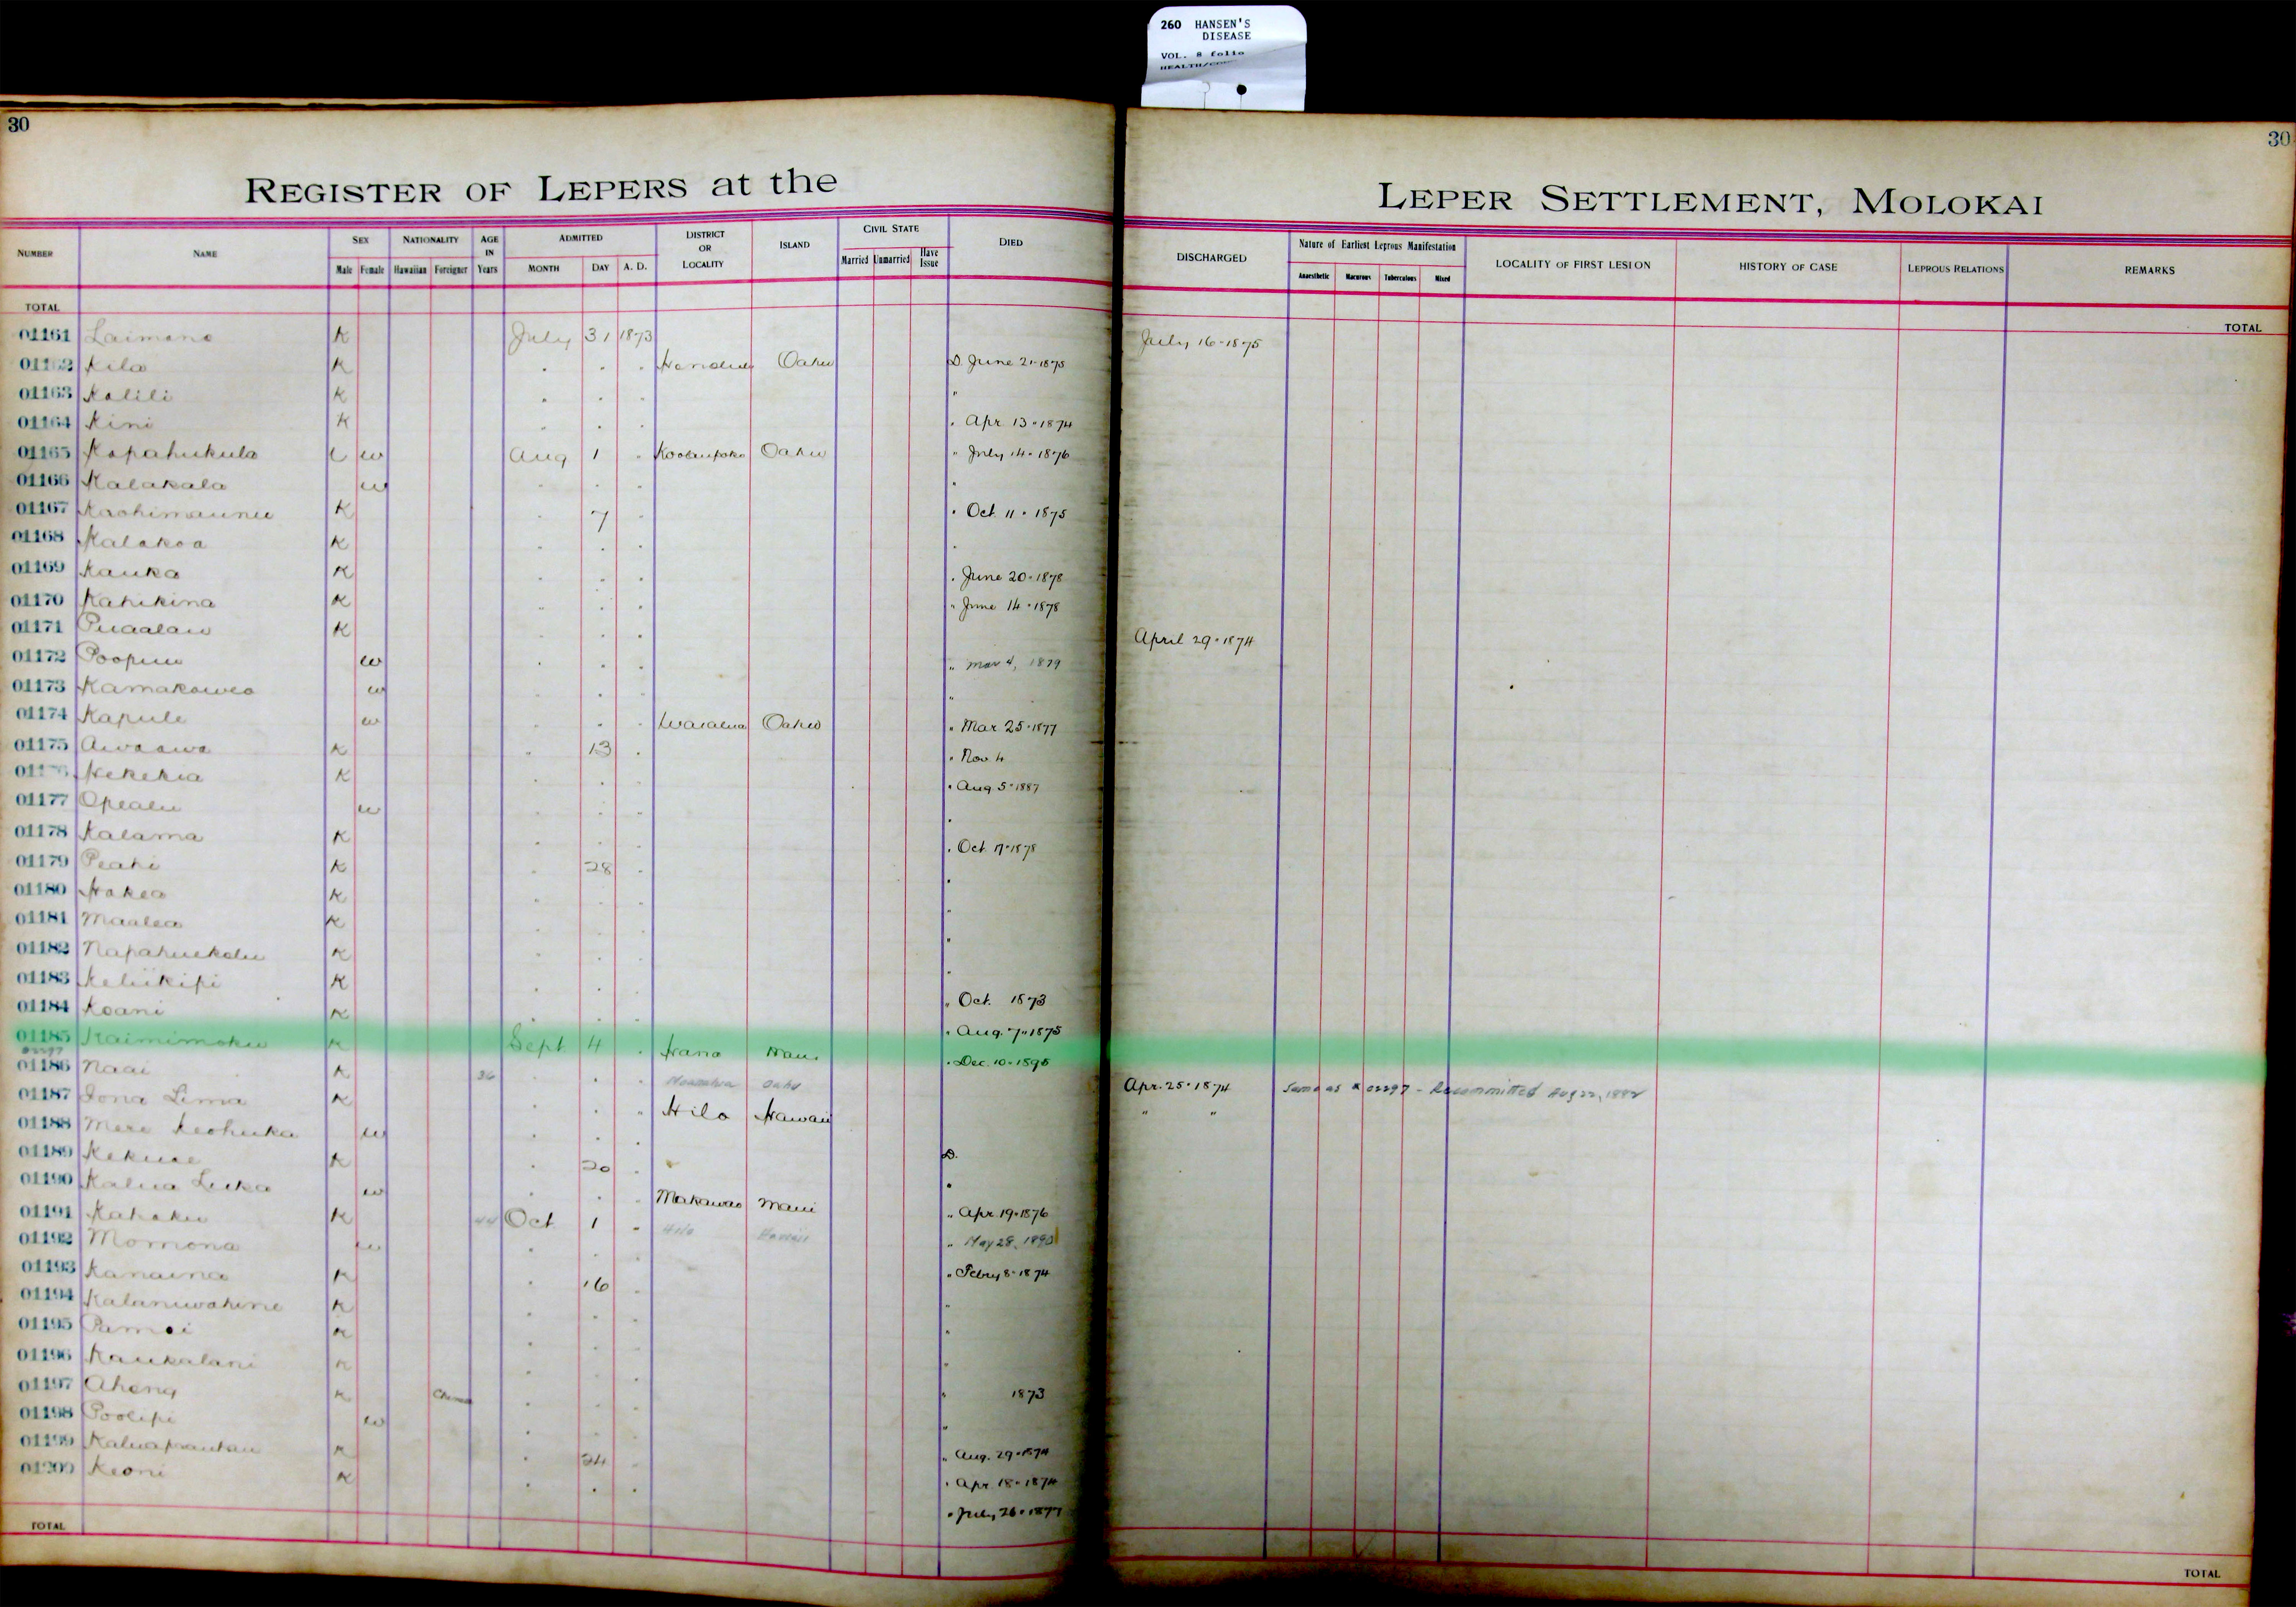 260 HANSEN'S
DISEASE
VOL. 8 folio
30
30
REGISTER OF LEPERS at the LEPER SETTLEMENT, MOLOKAI
NUMBER NAME SEX NATIONALITY AGE IN Years ADMITTED DISTRICT OR LOCALITY ISLAND CIVIL STATE DIED DISCHARGED Nature of Earliest Leprous Manifestation LOCALITY OF FIRST LESION HISTORY OF CASE LEPROUS RELATIONS REMARKS
Male Female Hawaiian Foreigner MONTH DAY A. D. Married Unmarried Have Issue Anaesthetic Macurous Tuberculous Mixed
TOTAL TOTAL
01161 Laimana K July 31 1873 July 16-1875
Kila K . . . Honolulu Oahu D. June 21-1875
01163 Kalili K . . . "
01164 Kini K . . . . Apr. 13-1874
01165 Kapahukula w Aug 1 . Koolaupoko Oahu " July 14-1876
01166 Kalakala w . . . .
01167 K . 7 . . Oct. 11-1875
01168 Kalakoa K . . . .
01169 Kauka K . . . . June 20-1878
01170 Kahikina K . . . " June 14-1878
01171 Puaalau K . . . April 29-1874
01172 w . . . " Mar 4, 1879
01173 w . . . "
01174 Kapule w . . . Waialua Oahu " Mar. 25-1877
01175 Awaawa K . 13 . . Nov. 4
Kekekia K . . . . Aug 5-1887
01177 Opealu w . . . .
01178 Kalama K . . . . Oct. 17-1878
01179 Peahi K . 28 . .
01180 Hakea K . . . .
01181 Maalea K . . . .
01182 Napahuekolu K . . . "
01183 Keliikipi K . . . " Oct. 1873
01184 Koani K . . . " Aug. 7-1875
01185 Kaimimoku K Sept. 4 . Hana Maui . Dec. 10-1895
01186 Naai K 36 . . . Oahu Apr. 25-1874 Same as # 02297 - Recommitted Aug 22, 1882
01187 Iona Lima K . . " Hilo Hawaii " "
01188 Mere Keohuka w . . . D.
01189 Kekuae K . 20 . .
01190 Kalua Luka w . . . Makawao Maui " Apr. 19-1876
01191 Kahaku K 44 Oct 1 " Hilo Hawaii " May 28, 1890
01192 Momona w . . . " Febry 8-1874
01193 Kanaina K . 16 . "
01194 Kalaniwahine K . . . "
01195 K . . . "
01196 Kaukalani K . . .
01197 Aheng K . . . " 1873
01198 Poolipi w . . . "
01199 K . 24 . " Aug. 29-1874
01200 Keoni K . . . . Apr. 18-1874
. July 26-1877
TOTAL TOTAL